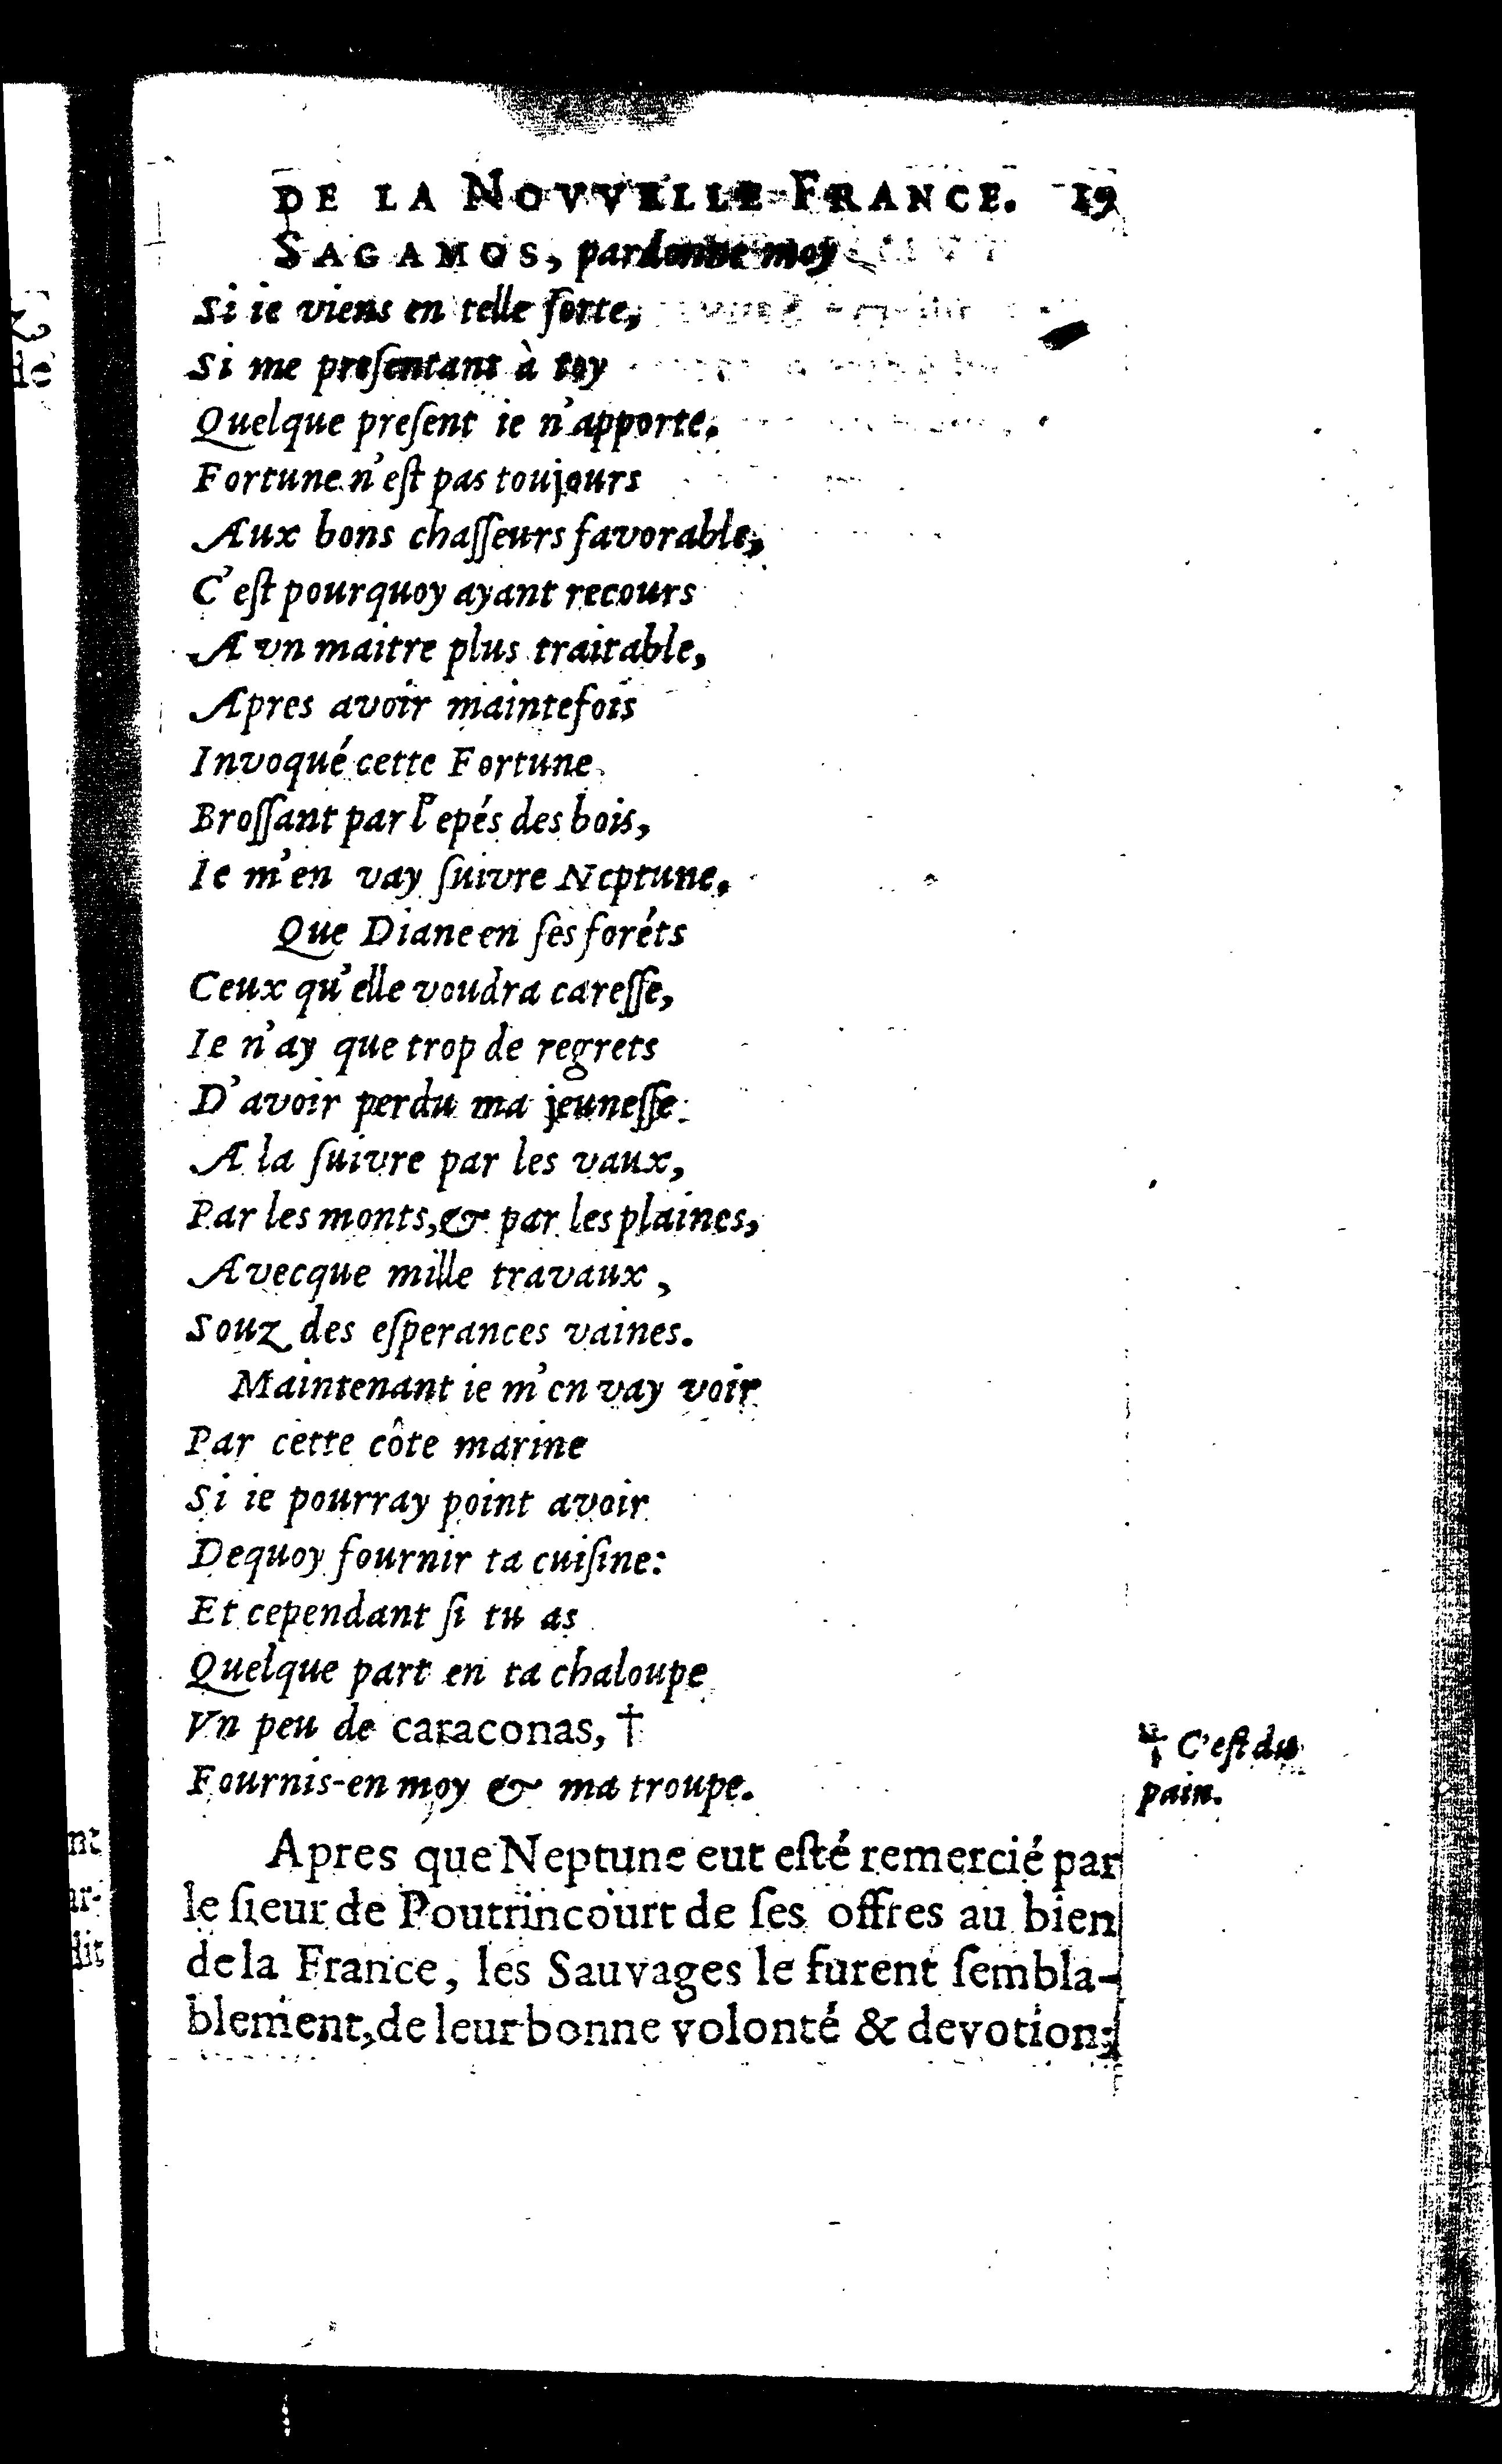 DE LA NOVVELLE-FRANCE. 19
SAGAMOS, pardonne moy
Si ie viens en telle ſorte,
Si me preſentant à toy
Quelque preſent ie n'apporte.
Fortune n'eſt pas toujours
Aux bons chaſſeurs favorable,
C'eſt pourquoy ayant recours
A vn maitre plus traitable,
Apres avoir maintefois
Invoqué cette Fortune
Broſſant par l'epés des bois,
Ie m'en vay ſuivre Neptune.
Que Diane en ſes foréts
Ceux qu'elle voudra careſſe,
Ie n'ay que trop de regrets
D'avoir perdu ma jeuneſſe
A la ſuivre par les vaux,
Par les monts, & par les plaines,
Avecque mille travaux,
Souz des eſperances vaines.
Maintenant ie m'en vay voir
Par cette côte marine
Si ie pourray point avoir
Dequoy fournir ta cuiſine:
Et cependant ſi tu as
Quelque part en ta chaloupe
Vn peu de caraconas, †
Fournis-en moy & ma troupe.
† C'eſt du
pain.
Apres que Neptune eut eſté remercié par
le ſieur de Poutrincourt de ſes offres au bien
de la France, les Sauvages le furent ſembla-
blement, de leur bonne volonté & devotion;